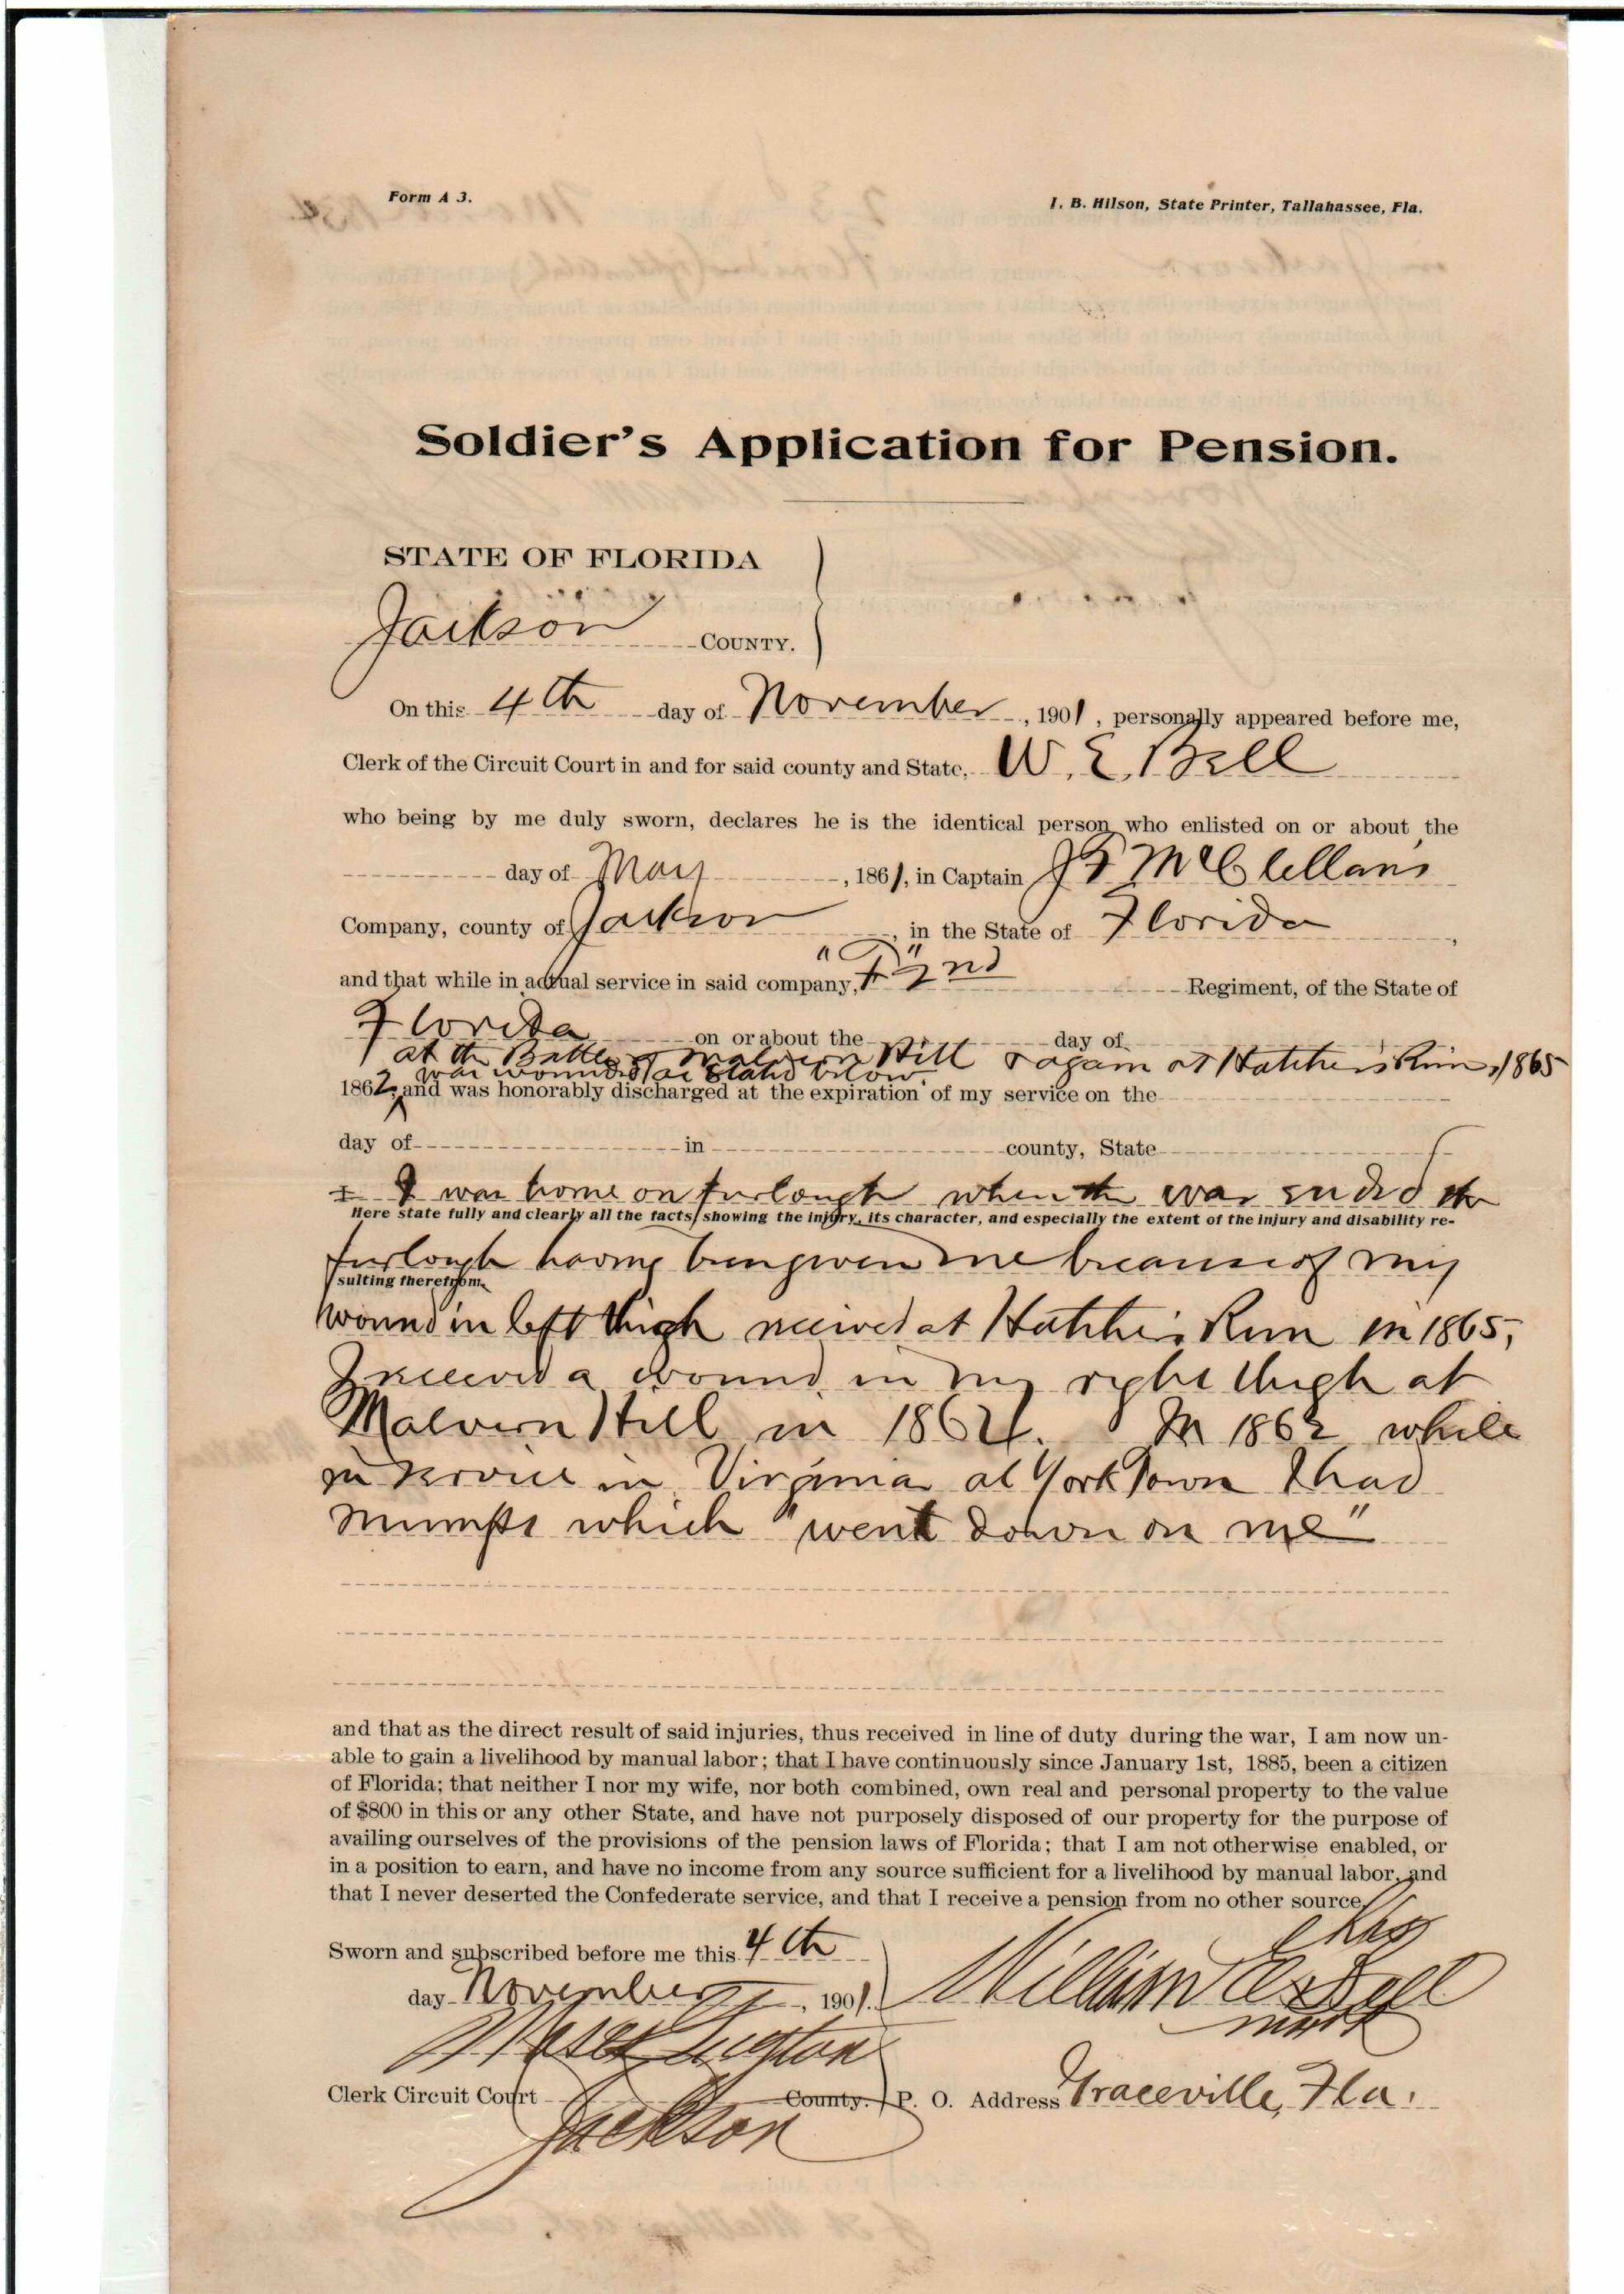 Form A 3.
I. B. Hilson, State Printer, Tallahassee, Fla.
Soldier's Application for Pension.
STATE OF FLORIDA
Jackson COUNTY.
On this 4th day of November, 1901, personally appeared before me,
Clerk of the Circuit Court in and for said county and State, W. E. Bell
who being by me duly sworn, declares he is the identical person who enlisted on or about the
day of May, 1861, in Captain J F McClellans
Company, county of Jackson, in the State of Florida,
"D"
and that while in actual service in said company, + 2nd Regiment, of the State of
Florida on or about the day of
at the Battle of Malvern Hill & again at Hatcher's Run, 1865
was wounded as stated below
1862, and was honorably discharged at the expiration of my service on the
day of in county, State
I was home on furlough when the war ended the
Here state fully and clearly all the facts showing the injury, its character, and especially the extent of the injury and disability re-
furlough having been given me because of my
sulting therefrom.
wound in left thigh received at Hatcher's Run in 1865,
I received a wound in my right thigh at
Malvern Hill in 1862. In 1862 while
in service in Virginia at York Town I had
mumps which "went down on me"
and that as the direct result of said injuries, thus received in line of duty during the war, I am now un-
able to gain a livelihood by manual labor; that I have continuously since January 1st, 1885, been a citizen
of Florida; that neither I nor my wife, nor both combined, own real and personal property to the value
of $800 in this or any other State, and have not purposely disposed of our property for the purpose of
availing ourselves of the provisions of the pension laws of Florida; that I am not otherwise enabled, or
in a position to earn, and have no income from any source sufficient for a livelihood by manual labor, and
that I never deserted the Confederate service, and that I receive a pension from no other source.
Sworn and subscribed before me this 4th
his
day November, 1901. William E x Bell
mark
Clerk Circuit Court County. P. O. Address Graceville, Fla.
Jackson